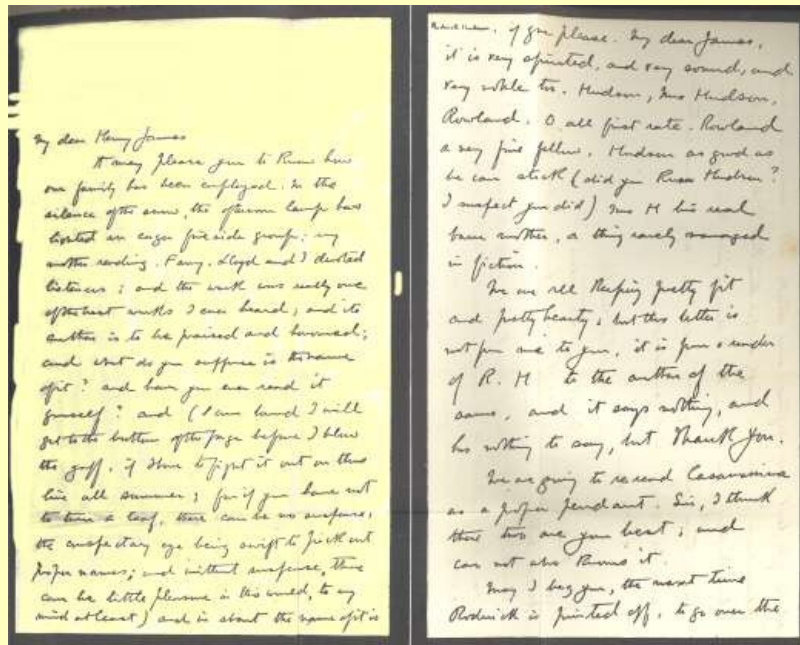 My dear Henry James
It may please you to know how
our family has been employed. In the
silence of the snow, the afternoon lamp has
lighted an eager fireside group: my
mother reading. Fanny, Lloyd and I devoted
listeners; and the work was really one
of the best works I ever heard; and its
author is to be praised and honoured;
and what do you suppose is the name
of it? and have you ever read it
yourself? and (I am bound I will
get to the bottom of the page before I blow
the gaff, if I have to fight it out on this
line all summer; for if you have not
to turn a leaf, there can be no suspense,
the conspectory eye being swift to pick out
proper names; and without suspense, there
can be little pleasure in this world, to my
mind at least) and in short the name of it is
Roderick Hudson, if you please. My dear James,
it is very spirited, and very sound, and
very noble too. Hudson, Mrs Hudson,
Rowland, O all first rate. Rowland
a very fine fellow, Hudson as good as
he can stick (did you know Hudson?
I suspect you did) Mrs H his real
born mother, a thing rarely managed
in fiction.
We are all keeping pretty fit
and pretty hearty, but this letter is
not from me to you, it is from a reader
of R. H to the author of the
same, and it says nothing, and
has nothing to say, but Thank you.
We are going to reread Casamassima
as a proper pendant. Sir, I think
these two are your best; and
care not who knows it.
May I beg you, the next time
Roderick is printed off, to go over the